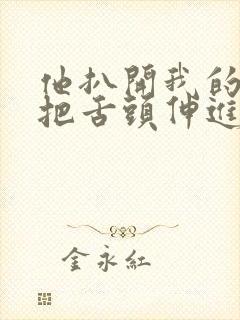 他扒開我的
把舌頭伸進
金永紅